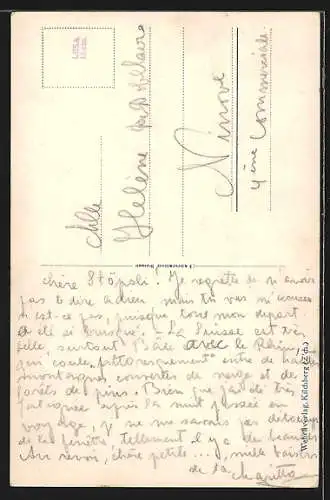 Mlle
Hélène
Ninove
4ème Commerciale
Wehrliverlag, Kilchberg (Zch.)
Chère Stöpsli. Je regrette de n'avoir
pas te dire adieu mais tu vas m'excuser
n'est-ce pas, puisque tout mon départ
a été si brusque. - La Suisse est très
belle, surtout Bâle avec le Rhin,
qui coule pittoresquement entre de hautes
montagnes couvertes de neige et des
forêts de pins. Bien que j'ai été très
fatiguée après la nuit passée en
voyage, je ne me savais pas détacher
de la fenêtre, tellement il y a de beautés
Au revoir, chère petite..., mille baisers
de ta